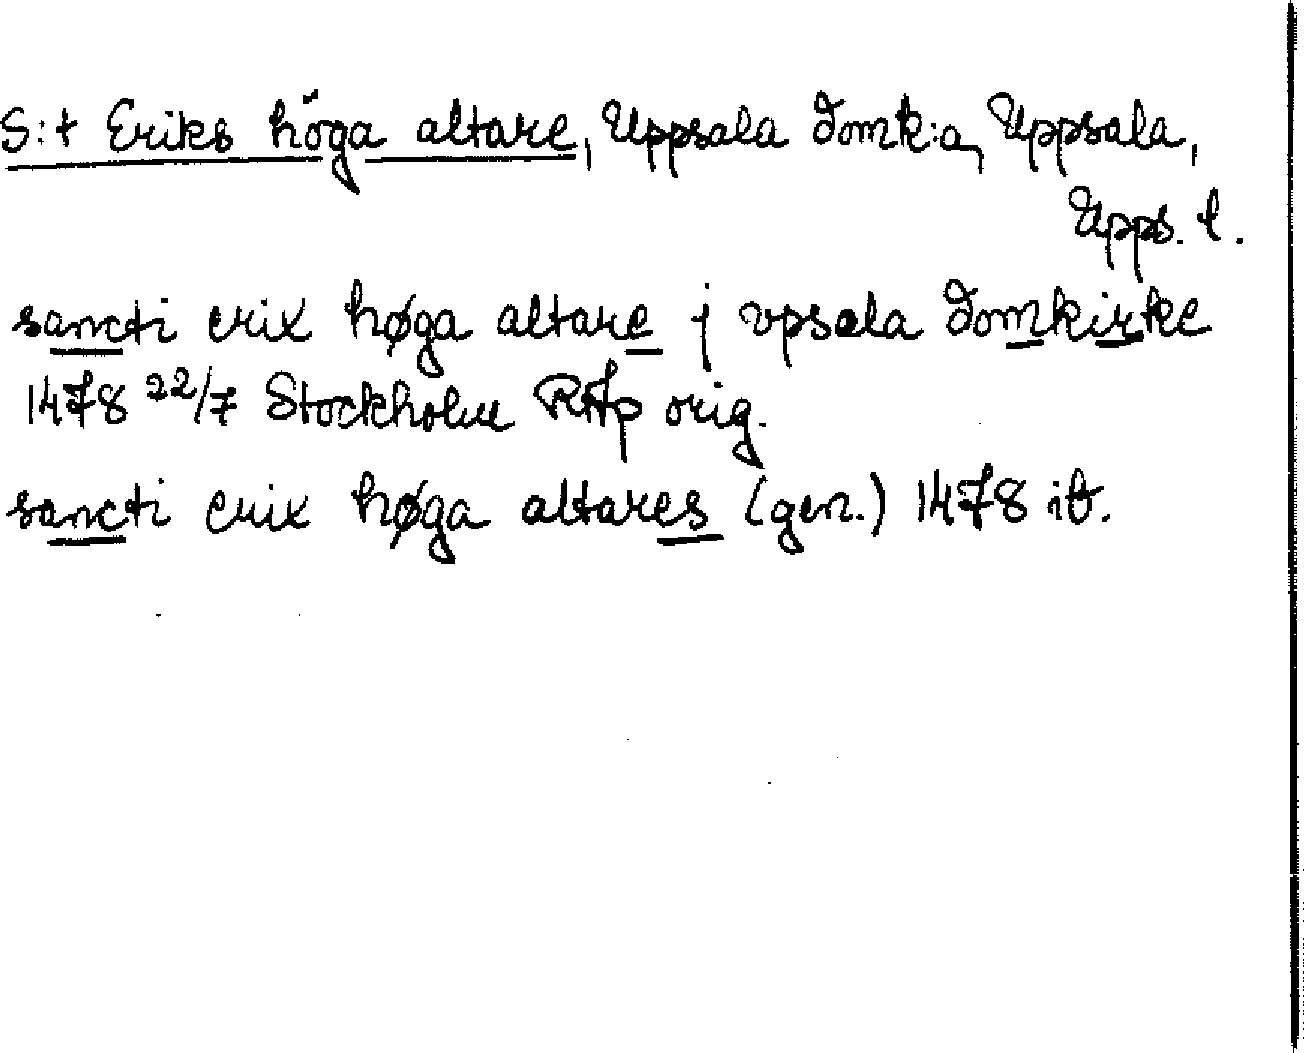 S:t Eriks höga altare, Uppsala domk:a, Uppsala,
Upps. l.
sancti erix høga altare j vpsala domkirke
1478 22/7 Stockholm RAp orig.
sancti erix høga altares (gen.) 1478 ib.